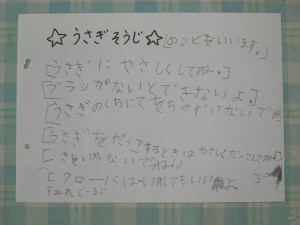 ☆うさぎそうじ☆のことをいいます。
[うさぎにやさしくしてね。]
[ブラシがないとできないよ。]
[うさぎのくちにてをちかづけないでね
[うさぎをだっこするときはやさしくだっこしてね。]
[ きをいれないでね。]
[クローバーはいれてもいいよ。]
すみれぐるーぷ